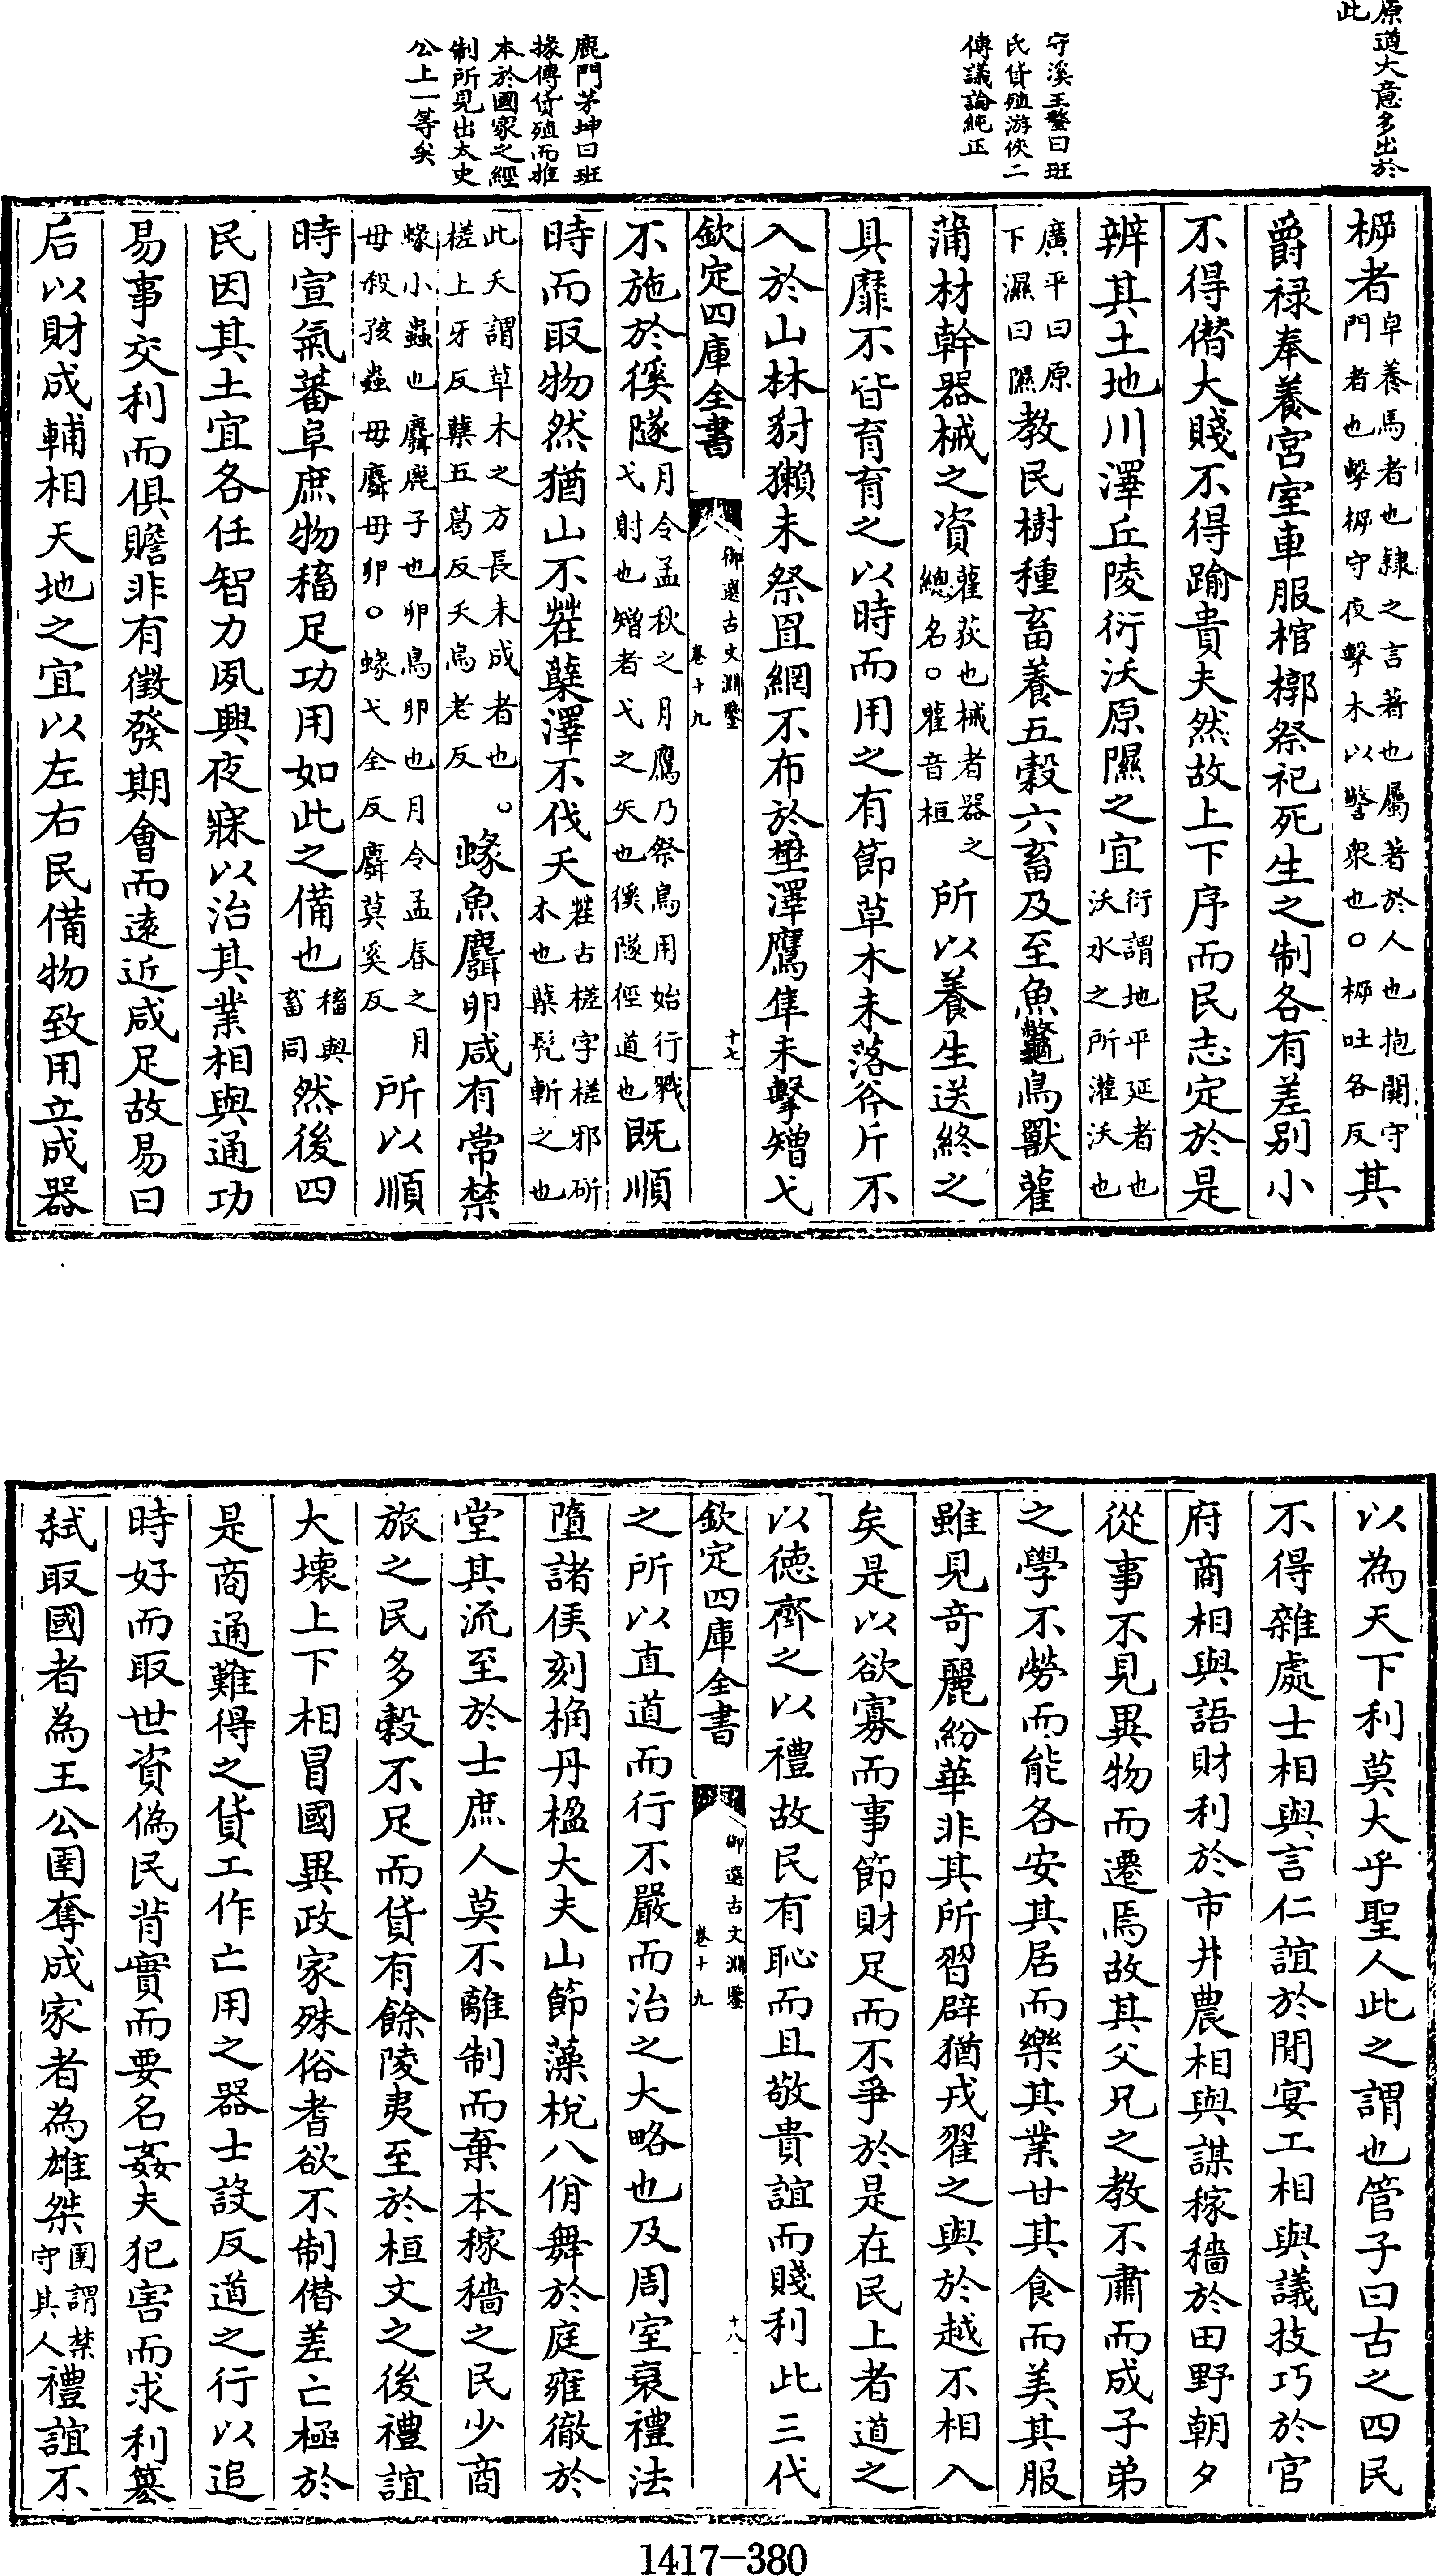 原道大意多出於
此
守溪王鏊曰班
氏貨殖游俠二
傳議論純正
鹿門茅坤曰班
掾傳貨殖而推
本於國家之經
制所見出太史
公上一等矣
柝者皁養馬者也隸之言著也屬著於人也抱關守門者也擊柝守夜擊木以警衆也○柝吐各反其
爵禄奉養宫室車服棺槨祭祀死生之制各有差别小
不得僭大賤不得踰貴夫然故上下序而民志定於是
辨其土地川澤丘陵衍沃原隰之宜衍謂地平延者也沃水之所灌沃也
廣平曰原下濕曰隰教民樹種畜養五穀六畜及至魚鼈鳥獸雚
蒲材幹器械之資雚荻也械者器之總名○雚音桓所以養生送終之
具靡不皆育育之以時而用之有節草木未落斧斤不
入於山林豺獺未祭罝網不布於壄澤鷹隼未擊矰弋
欽定四庫全書
御選古文淵鑒
卷十九
十七
不施於徯隧月令孟秋之月鷹乃祭鳥用始行戮弋射也矰者弋之矢也徯隧徑道也既順
時而取物然猶山不茬蘖澤不伐夭茬古槎字槎邪斫木也蘖髡斬之也
此夭謂草木之方長未成者也。槎上牙反蘖五葛反夭烏老反蝝魚麛卵咸有常禁
蝝小蟲也麛鹿子也卵鳥卵也月令孟春之月毋殺孩蟲毋麛毋卵○蝝弋全反麛莫奚反所以順
時宣氣蕃阜庶物稸足功用如此之備也稸與畜同然後四
民因其土宜各任智力夙興夜寐以治其業相與通功
易事交利而俱贍非有徵發期會而遠近咸足故易曰
后以財成輔相天地之宜以左右民備物致用立成器
以為天下利莫大乎聖人此之謂也管子曰古之四民
不得雜處士相與言仁誼於閒宴工相與議技巧於官
府商相與語財利於市井農相與謀稼穡於田野朝夕
從事不見異物而遷焉故其父兄之教不肅而成子弟
之學不勞而能各安其居而樂其業甘其食而美其服
雖見奇麗紛華非其所習辟猶戎翟之與於越不相入
矣是以欲寡而事節財足而不爭於是在民上者道之
以德齊之以禮故民有恥而且敬貴誼而賤利此三代
欽定四庫全書
御選古文淵鑒
卷十九
十八
之所以直道而行不嚴而治之大略也及周室衰禮法
墮諸侯刻桷丹楹大夫山節藻梲八佾舞於庭雍徹於
堂其流至於士庶人莫不離制而棄本稼穡之民少商
旅之民多穀不足而貨有餘陵夷至於桓文之後禮誼
大壞上下相冒國異政家殊俗耆欲不制僭差亡極於
是商通難得之貨工作亡用之器士設反道之行以追
時好而取世資偽民背實而要名姦夫犯害而求利篡
弑取國者為王公圉奪成家者為雄桀圉謂禁守其人禮誼不
1417-380